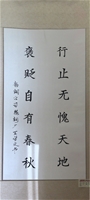 行止无愧天地
褒贬自有春秋